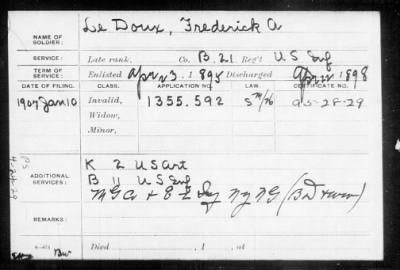 NAME OF SOLDIER: Le Doux, Frederick A
SERVICE: Late rank, Co. B. 21 Reg't U S Inf
TERM OF SERVICE: Enlisted Apr 23, 1895 Discharged Apr 22, 1898
DATE OF FILING. CLASS. APPLICATION NO. LAW. CERTIFICATE NO.
1907 Jan 10 Invalid, 1355.592
Widow,
Minor,
ADDITIONAL SERVICES: K 2 US art
B 11 U S Inf
M G Co + E 2 Inf N Y N G
REMARKS:
Died , 1 , at